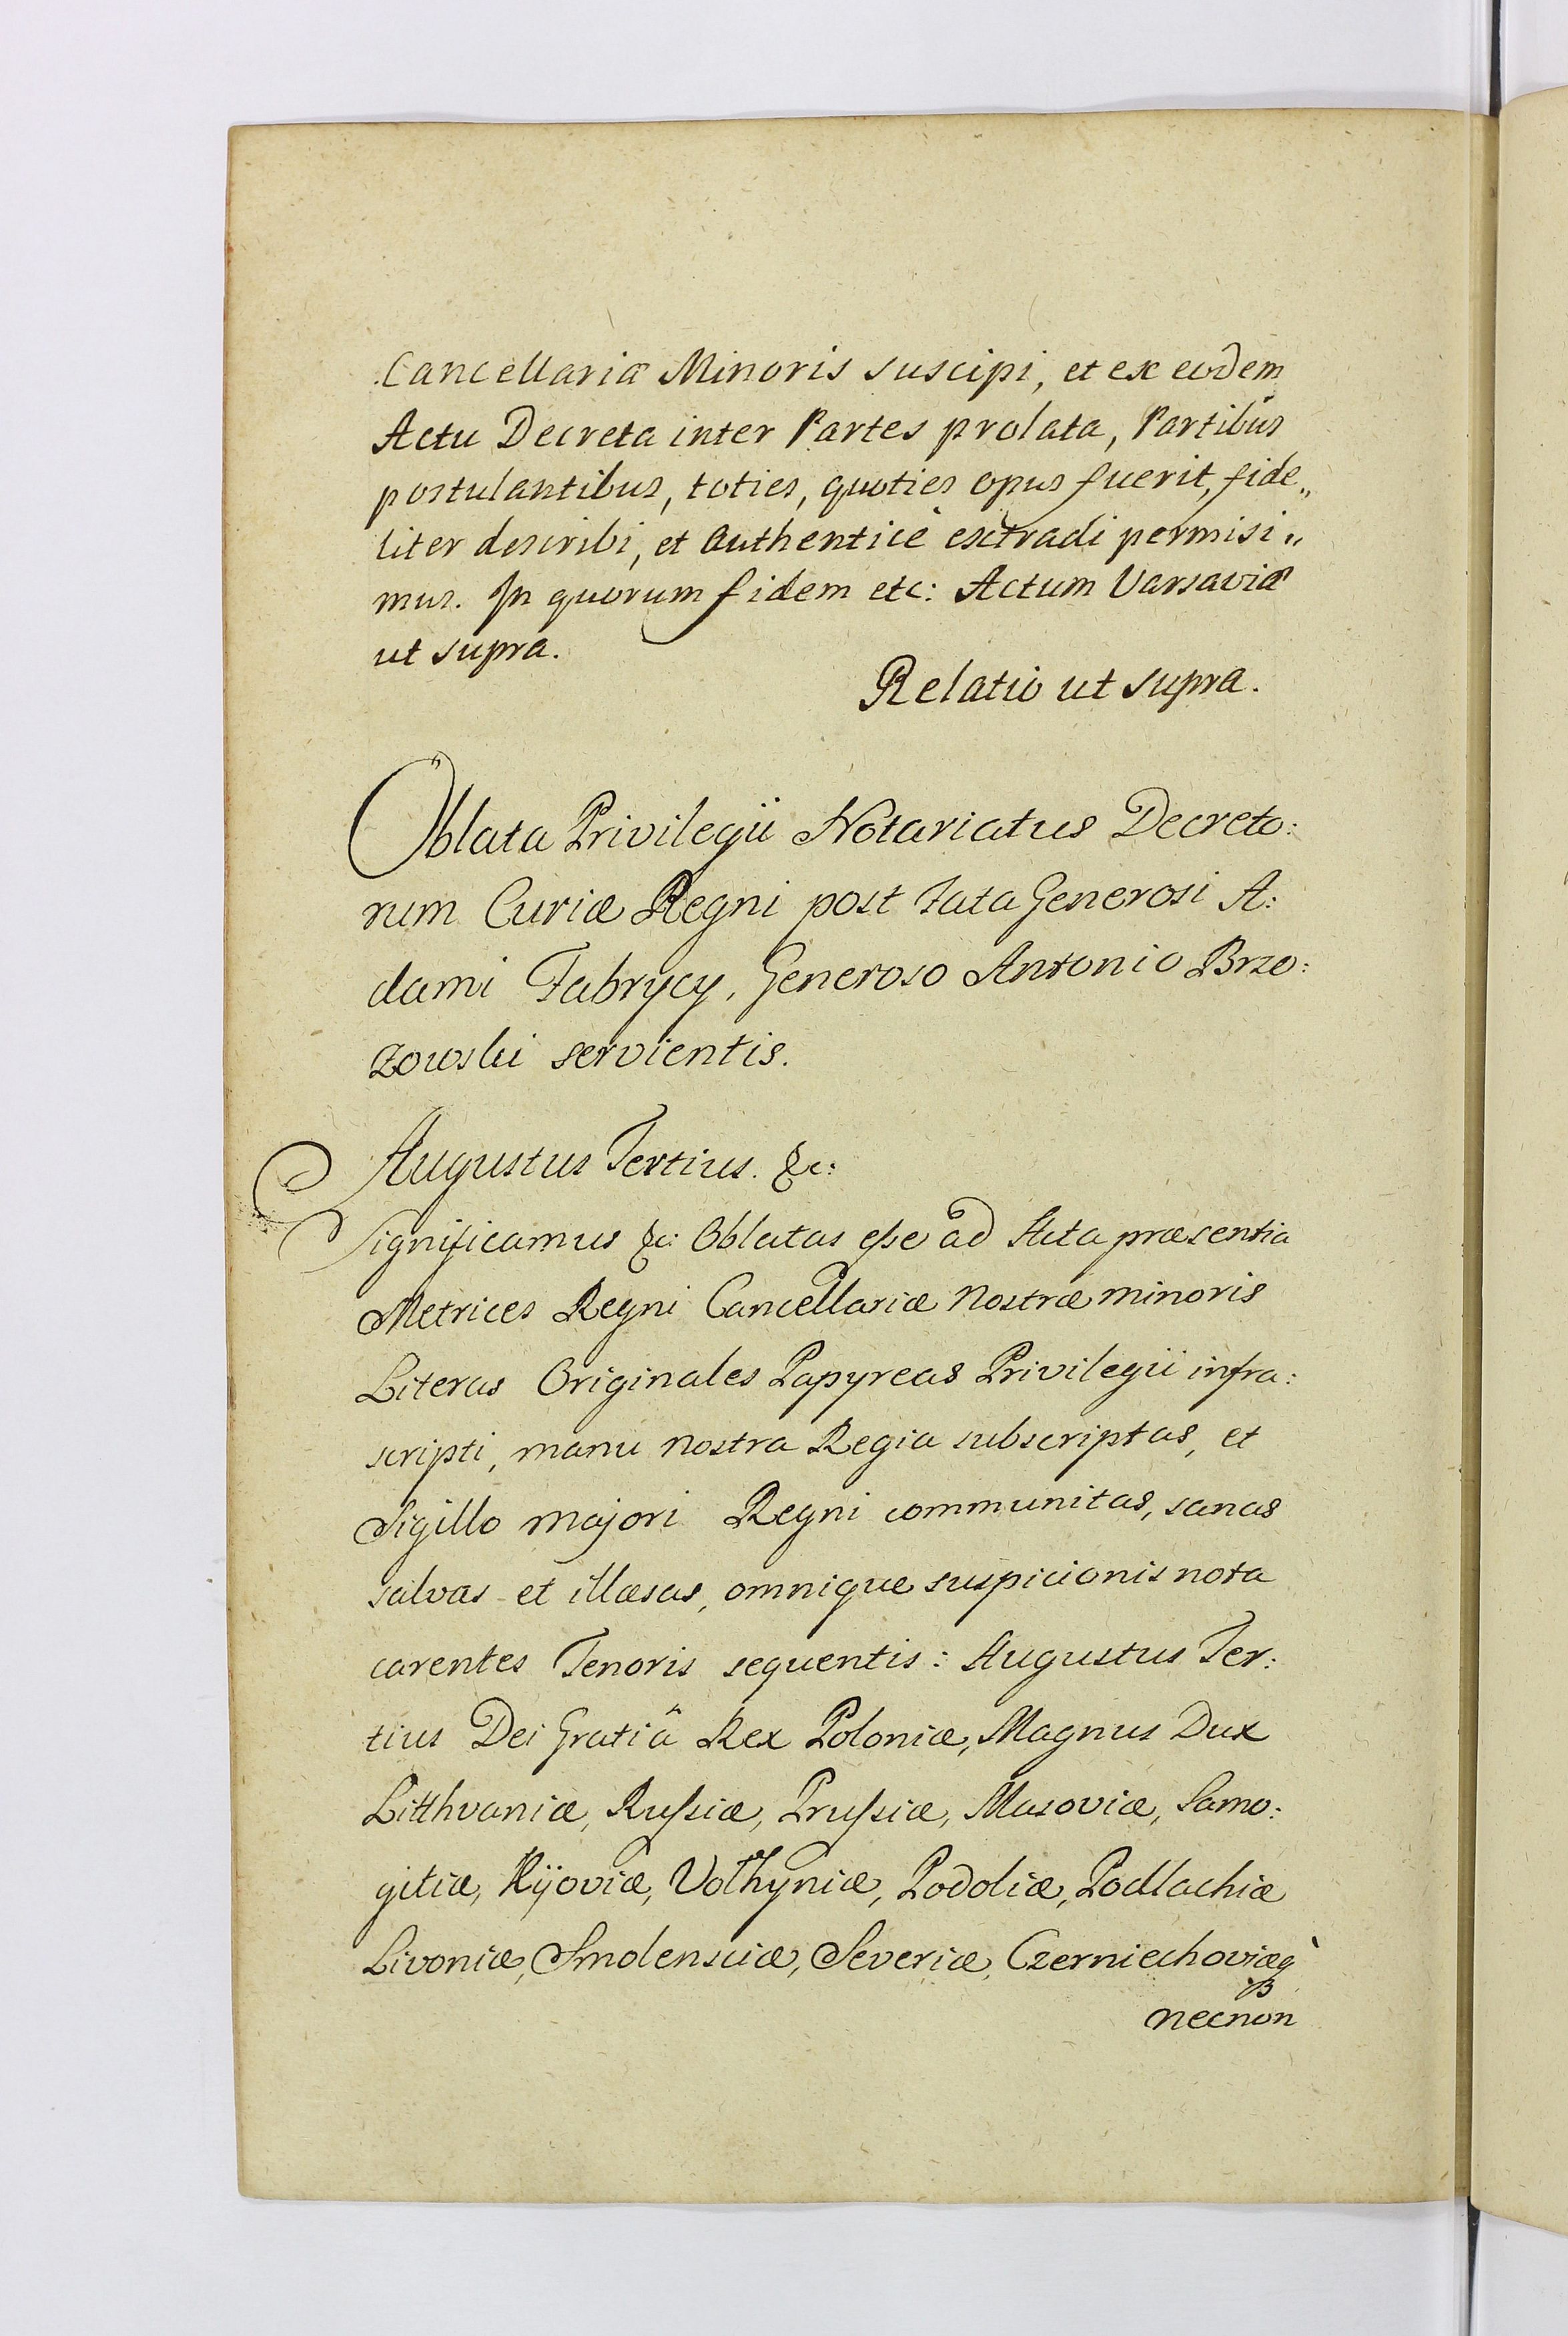 Cancellariæ Minoris suscipi, et ex eodem
Actu Decreta inter Partes prolata, Partibus
postulantibus, toties, quoties opus fuerit, fide„
liter describi, et Authenticè extradi permisi„
mus. In quorum fidem etc: Actum Varsaviæ
ut supra.
Relatio ut supra.
Oblata Privilegii Notariatus Decreto:
rum Curiæ Regni post Fata Generosi A:
dami Fabrycy, Generoso Antonio Brzo:
zowski servientis.
Augustus Tertius. &c:
Significamus &c: Oblatas eſse ad Acta præsentia
Metrices Regni Cancellariæ Nostræ minoris
Literas Originales Papyreas Privilegii infra:
scripti, manu nostra Regia subscriptas, et
Sigillo majori Regni communitas, sanas
salvas et illæsas, omnique suspicionis nota
carentes Tenoris sequentis: Augustus Ter:
tius Dei Gratiâ Rex Poloniæ, Magnus Dux
Litthvaniæ, Ruſsiæ, Pruſsiæ, Masoviæ, Samo:
gitiæ, Kijoviæ, Volhyniæ, Podoliæ, Podlachiæ
Livoniæ, Smolensciæ, Severiæ, Czerniechoviæq̀ꝫ
necnon